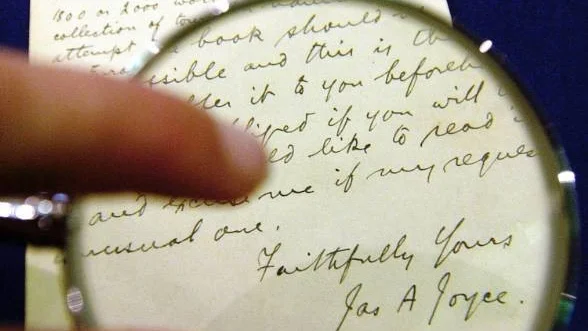 1500 or 2000 wor
collection of
attempt
book should
ssible and this is th
ffer it to you before
liged if you will
ed like to read i
and excuse me if my reques
unusual one.
Faithfully Yours
Jas A Joyce.